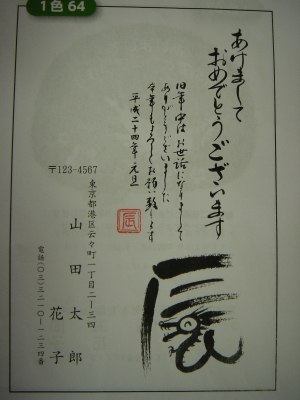 1色 64
あけまして
おめでとうございます
旧年中はお世話になりまして
ありがとうございました
本年もよろしくお願い致します
平成二十四年 元旦
辰
辰
〒123-4567
東京都港区云々町一丁目二ー三四
山田太郎
花子
電話(〇三)三二一〇ー一二三四番